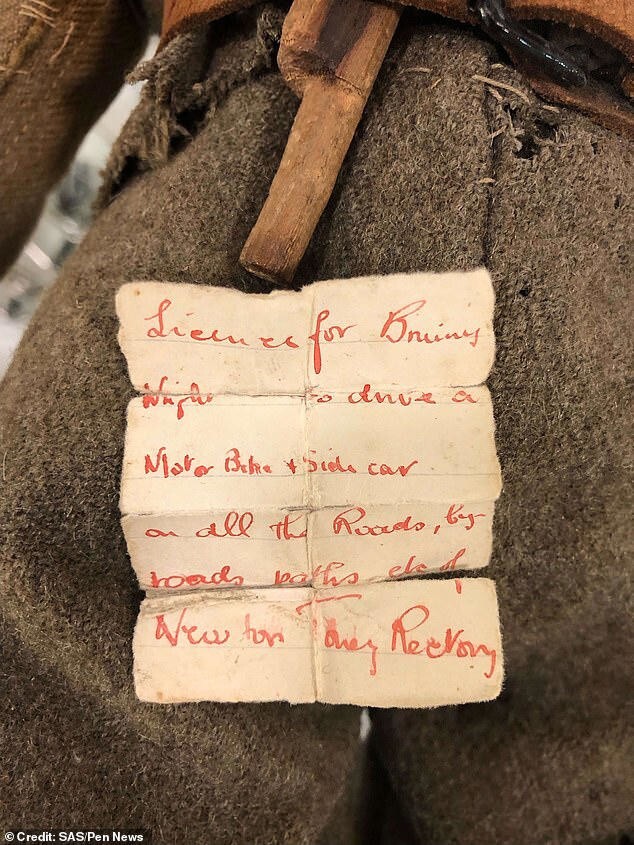 Licence for Bruiny
Wright to drive a
Motor Bike + Side car
on all the Roads, by-
roads paths etc of
Newton Toney Rectory
© Credit: SAS/Pen News